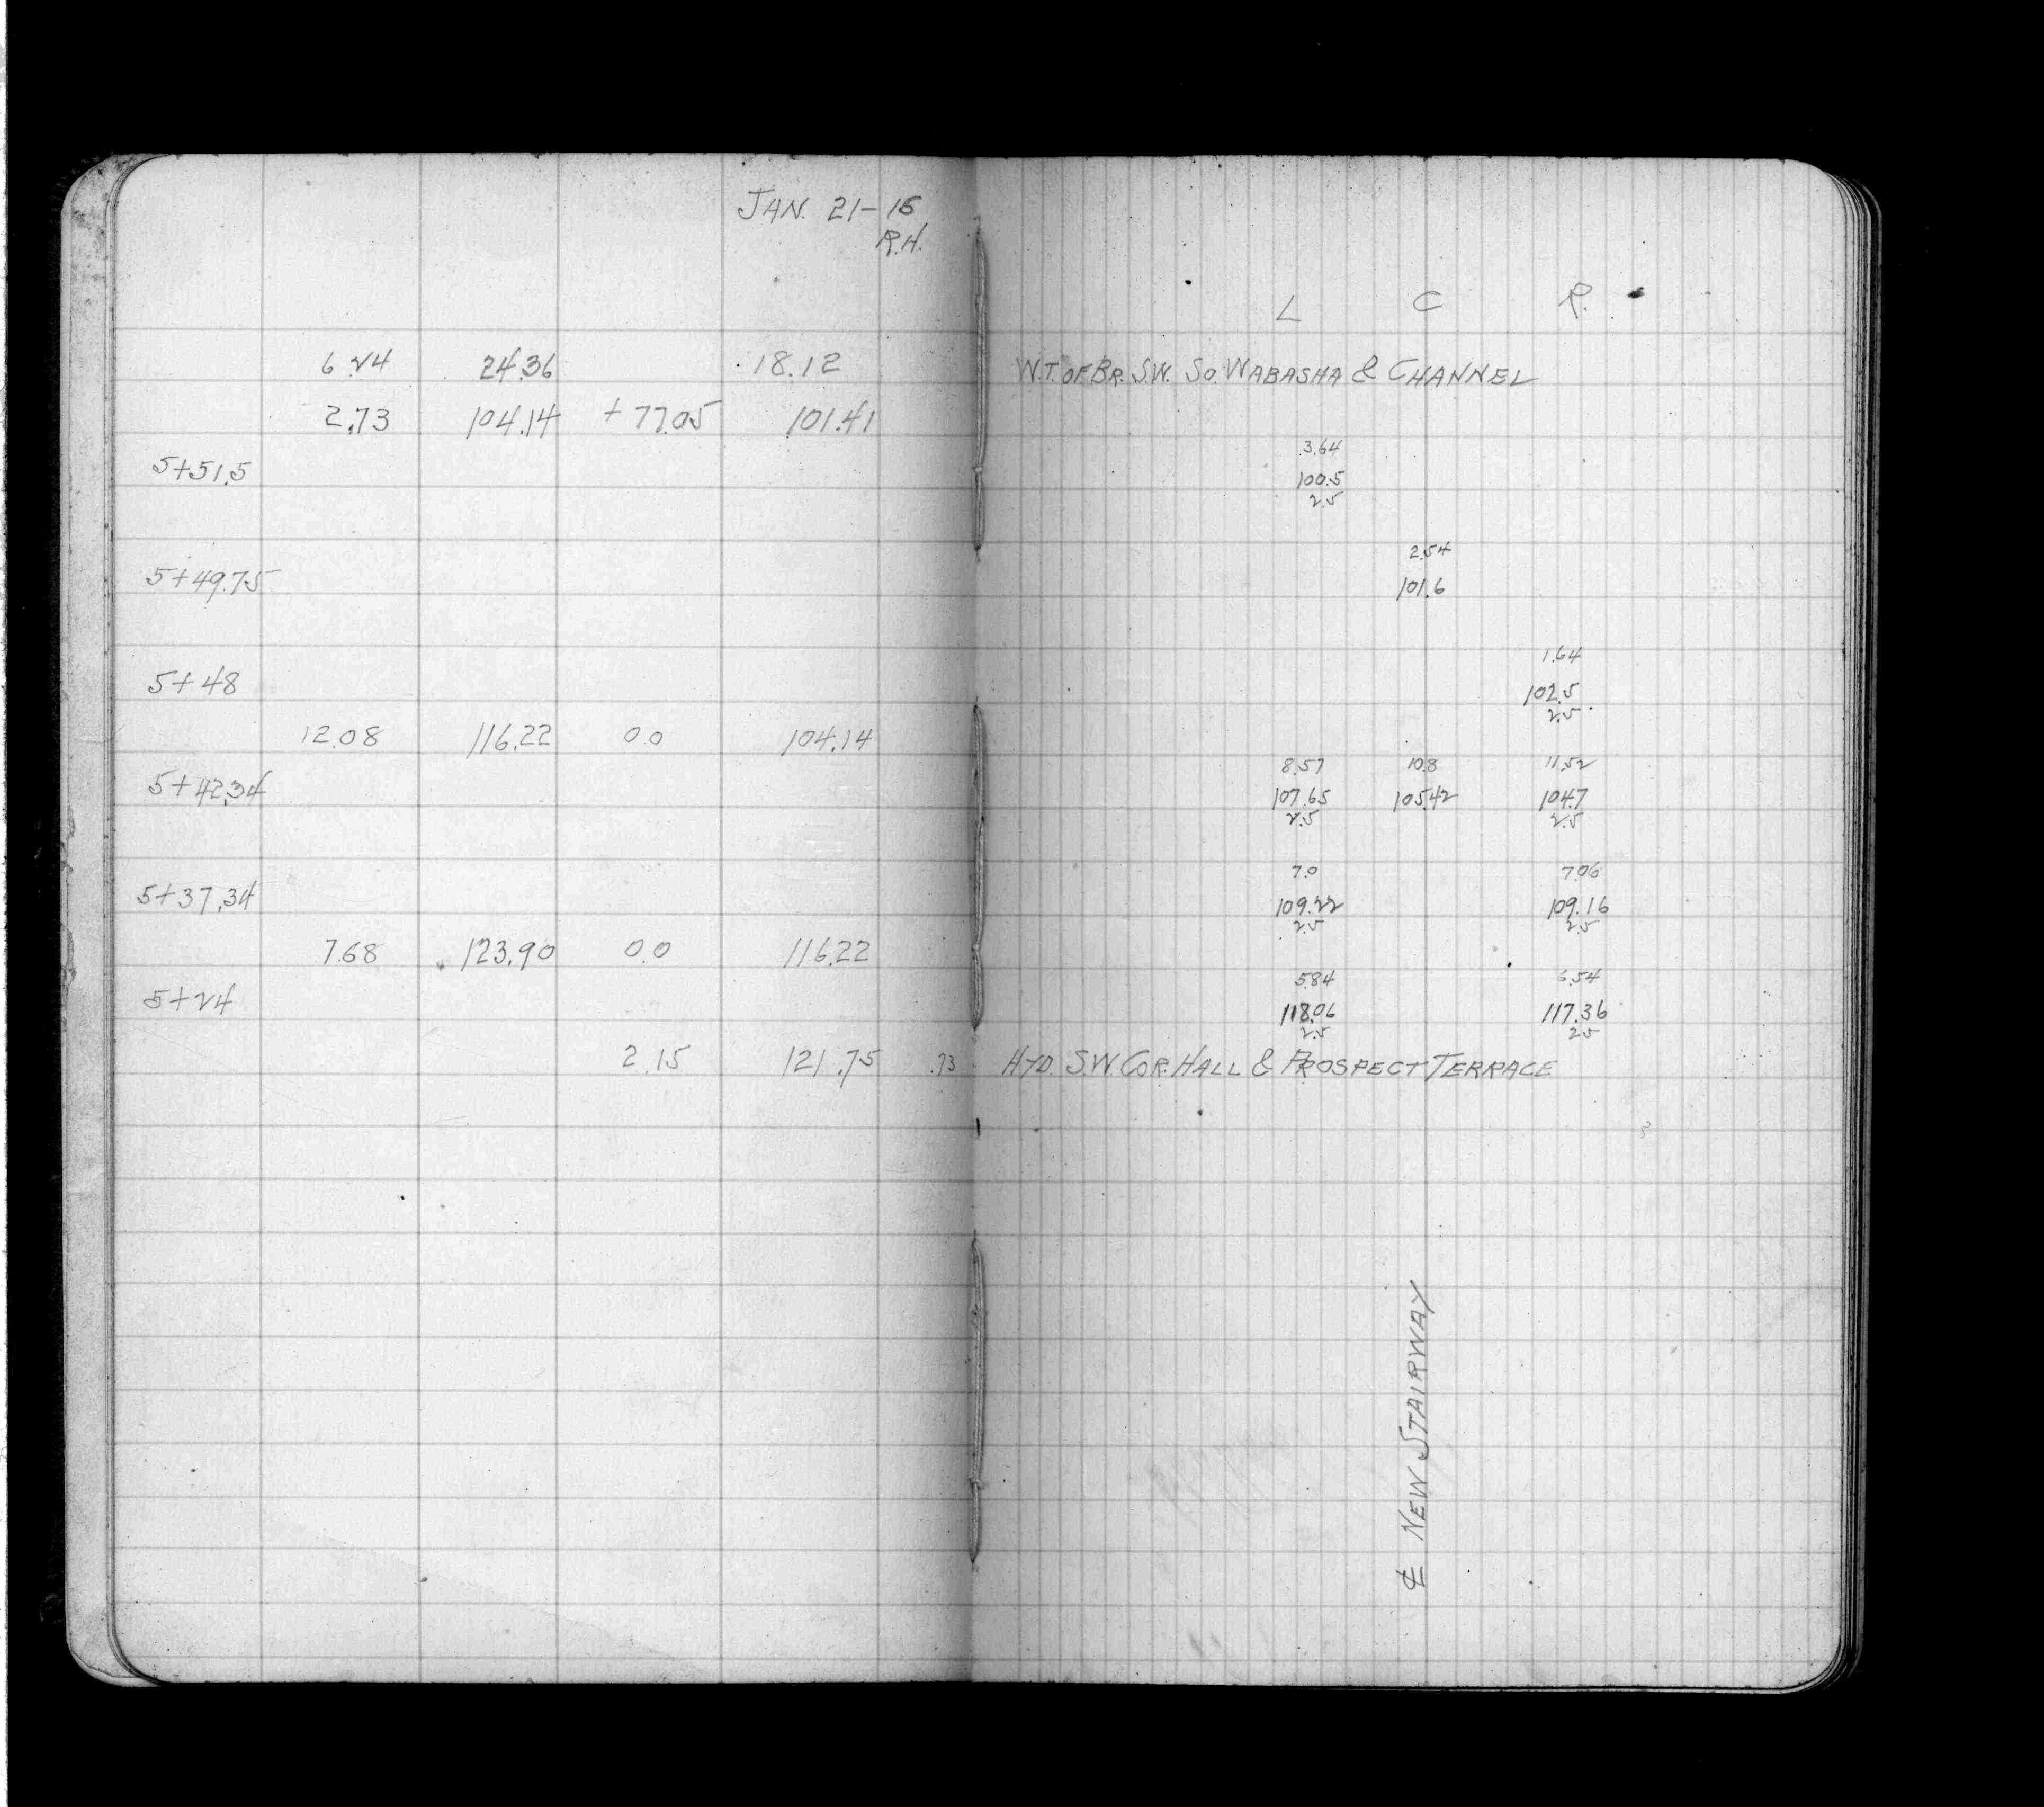 JAN. 21-15
R.H.
L C R.
6.24 24.36 18.12 W.T. OF BR. S.W. SO. WABASHA & CHANNEL
2.73 104.14 +77.05 101.41
3.64
5+51.5 100.5
2.5
2.54
5+49.75 101.6
1.64
5+48 102.5
2.5
12.08 116.22 0.0 104.14
8.57 10.8 11.52
5+42.34 107.65 105.42 104.7
2.5 2.5
7.0 7.06
5+37.34 109.22 109.16
2.5 2.5
7.68 123.90 0.0 116.22
5.84 6.54
5+24 118.06 117.36
2.5 2.5
2.15 121.75 .73 HYD. S.W. COR. HALL & PROSPECT TERRACE
℄ NEW STAIRWAY